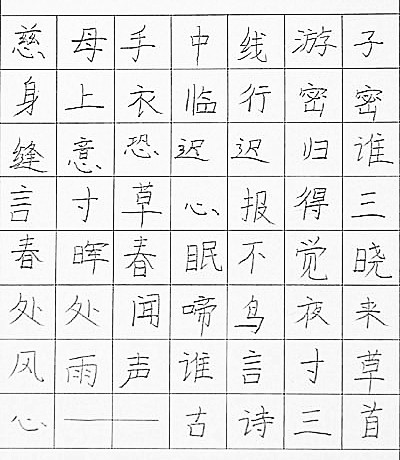 慈母手中线游子
身上衣临行密密
缝意恐迟迟归谁
言寸草心报得三
春晖春眠不觉晓
处处闻啼鸟夜来
风雨声谁言寸草
心——古诗三首